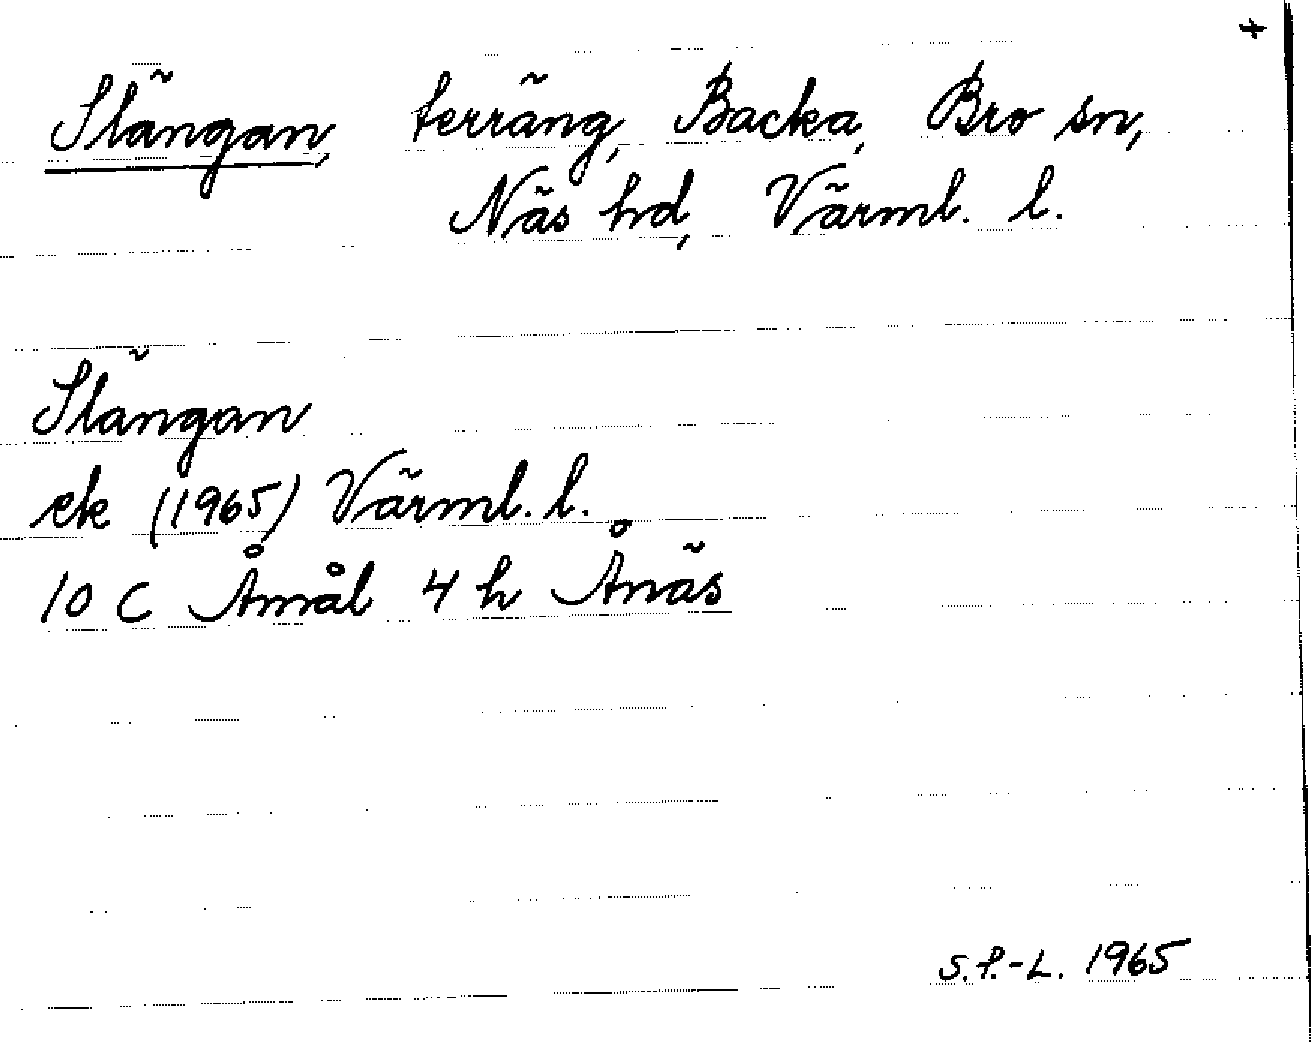 +
Slängan, terräng, Backa, Bro sn,
Näs hd, Värml. l.
Slängan
ek (1965) Värml. l.
10 C Åmål 4 h Ånäs
S.F.-L. 1965